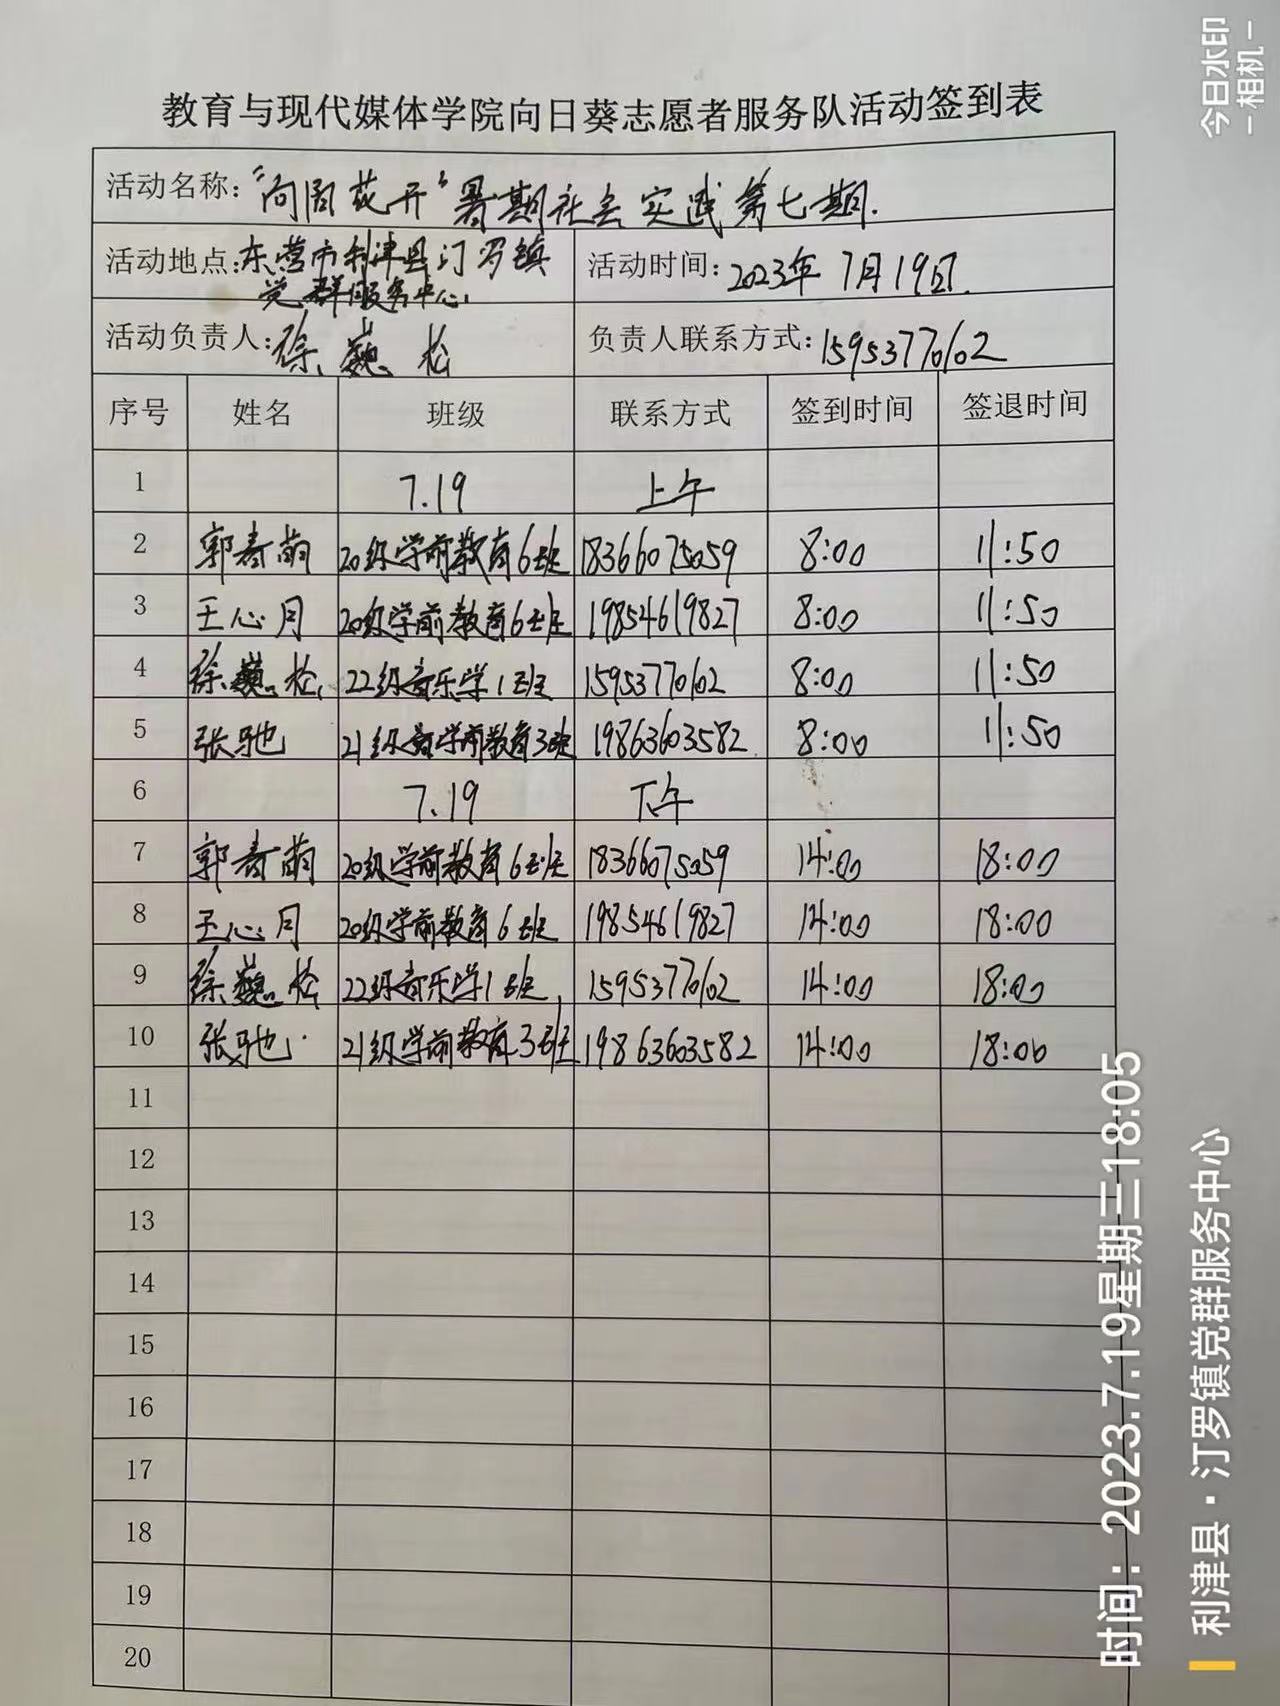 教育与现代媒体学院向日葵志愿者服务队活动签到表
活动名称：“向阳花开”暑期社会实践第七期.
活动地点：东营市利津县汀罗镇
党群服务中心
活动时间：2023年7月19日.
活动负责人：徐巍松
负责人联系方式：15953770102
序号 姓名 班级 联系方式 签到时间 签退时间
1 7.19 上午
2 郭春萌 20级学前教育6班 18366075059 8:00 11:50
3 王心月 20级学前教育6班 19854619827 8:00 11:50
4 徐巍松 22级音乐学1班 15953770102 8:00 11:50
5 张驰 21级学前教育3班 19863603582 8:00 11:50
6 7.19 下午
7 郭春萌 20级学前教育6班 18366075059 14:00 18:00
8 王心月 20级学前教育6班 19854619827 14:00 18:00
9 徐巍松 22级音乐学1班 15953770102 14:00 18:00
10 张驰 21级学前教育3班 19863603582 14:00 18:00
11
12
13
14
15
16
17
18
19
20
今日水印
-相机-
时间：2023.7.19星期三18:05
利津县·汀罗镇党群服务中心